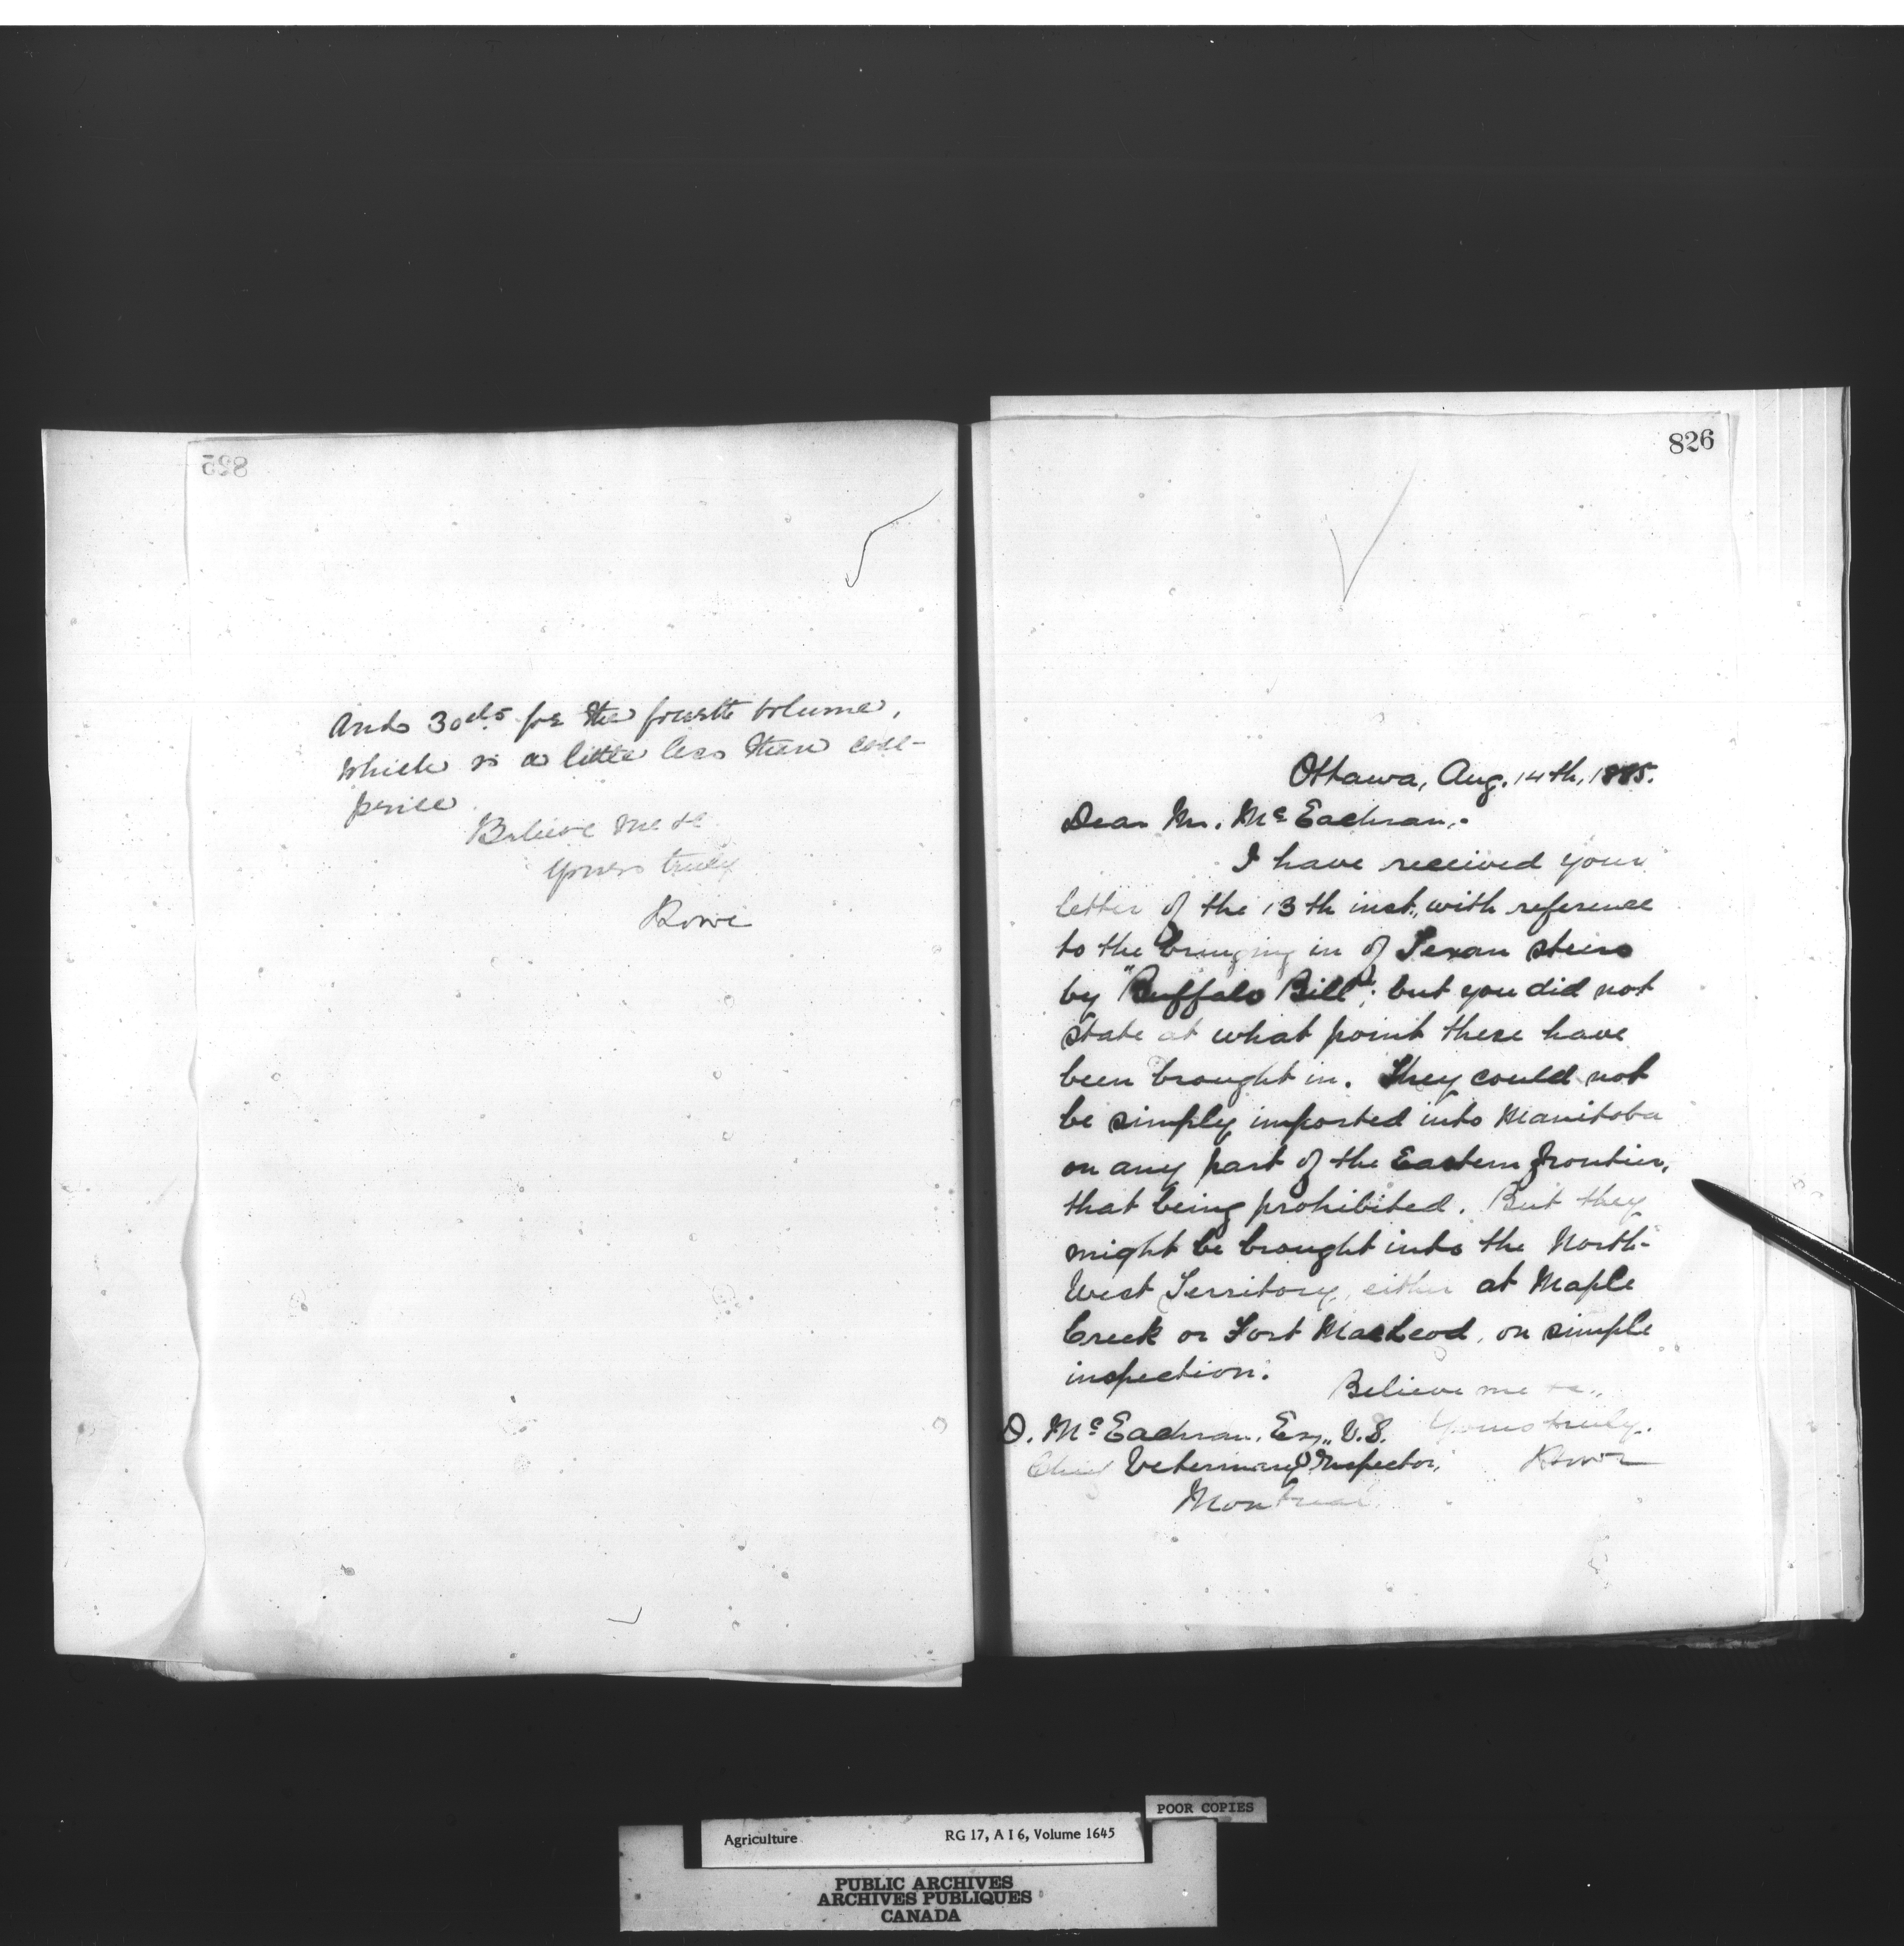 825
and 30cts for the fourth volume,
which is a little less than cost
price
Believe me &c
Yours truly
826
Ottawa, Aug. 14th, 1885.
Dear Mr. McEachran,
I have received your
letter of the 13th inst., with reference
to the bringing in of Texan steers
by "Buffalo Bill"; but you did not
state at what point these have
been brought in. They could not
be simply imported into Manitoba
on any part of the Eastern frontier,
that being prohibited. But they
might be brought into the North-
West Territory, either at Maple
Creek or Fort MacLeod, on simple
inspection.
Believe me &c.,
Yours truly.
D. McEachran, Esq., V.S.
Chief Veterinary Inspector,
Montreal.
POOR COPIES
Agriculture RG 17, A I 6, Volume 1645
PUBLIC ARCHIVES
ARCHIVES PUBLIQUES
CANADA